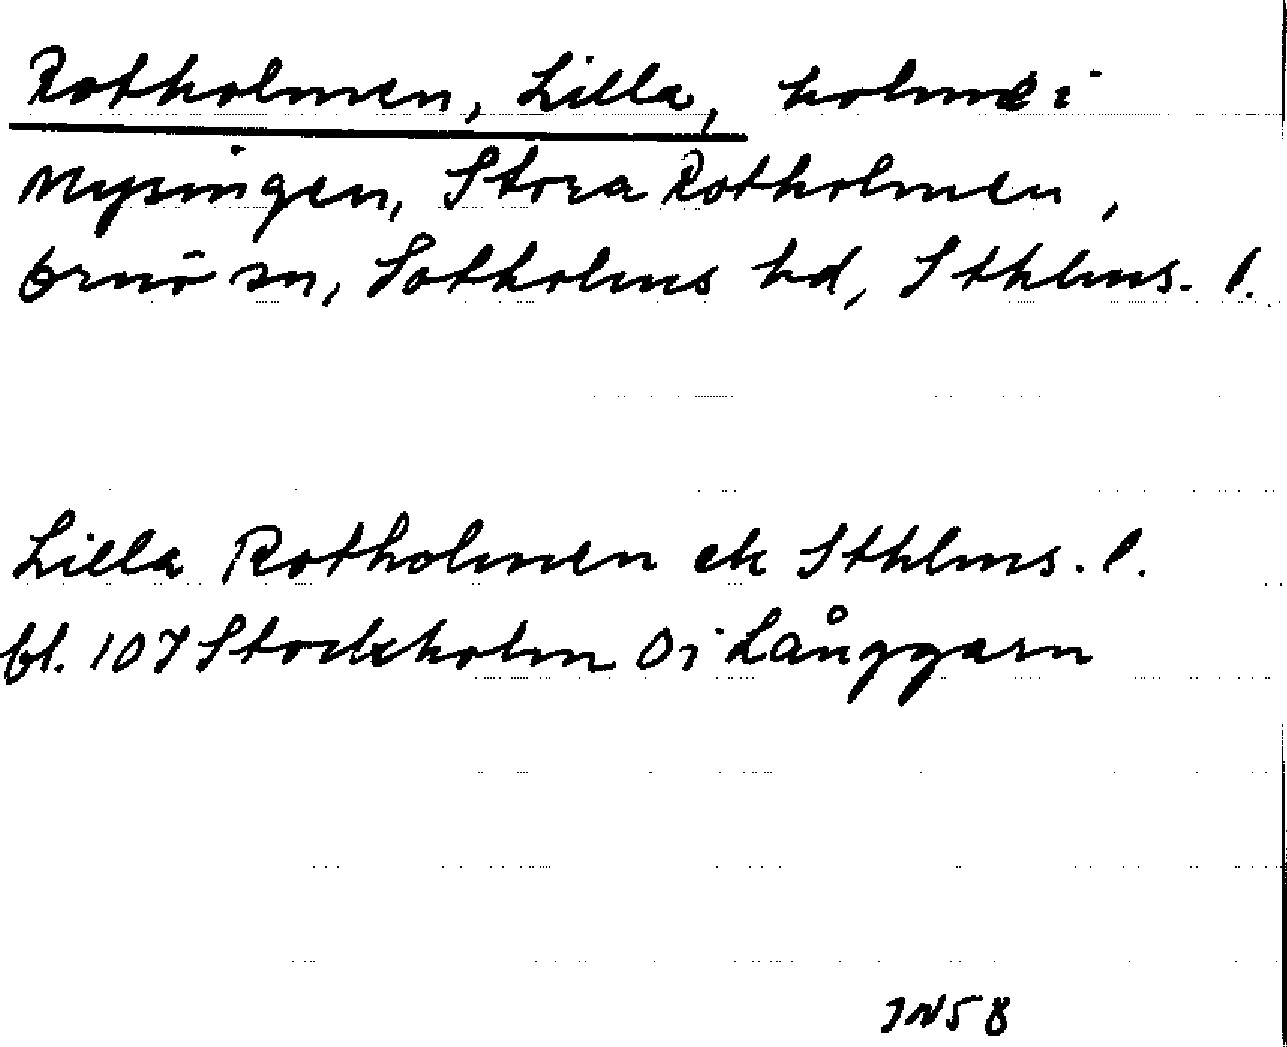 Rotholmen, Lilla, holme i
Mysingen, Stora Rotholmen,
Ornö sn, Sotholms hd, Sthlms. l.
Lilla Rotholmen ek Sthlms. l.
bl. 107 Stockholm Oj Långgarn
JN58